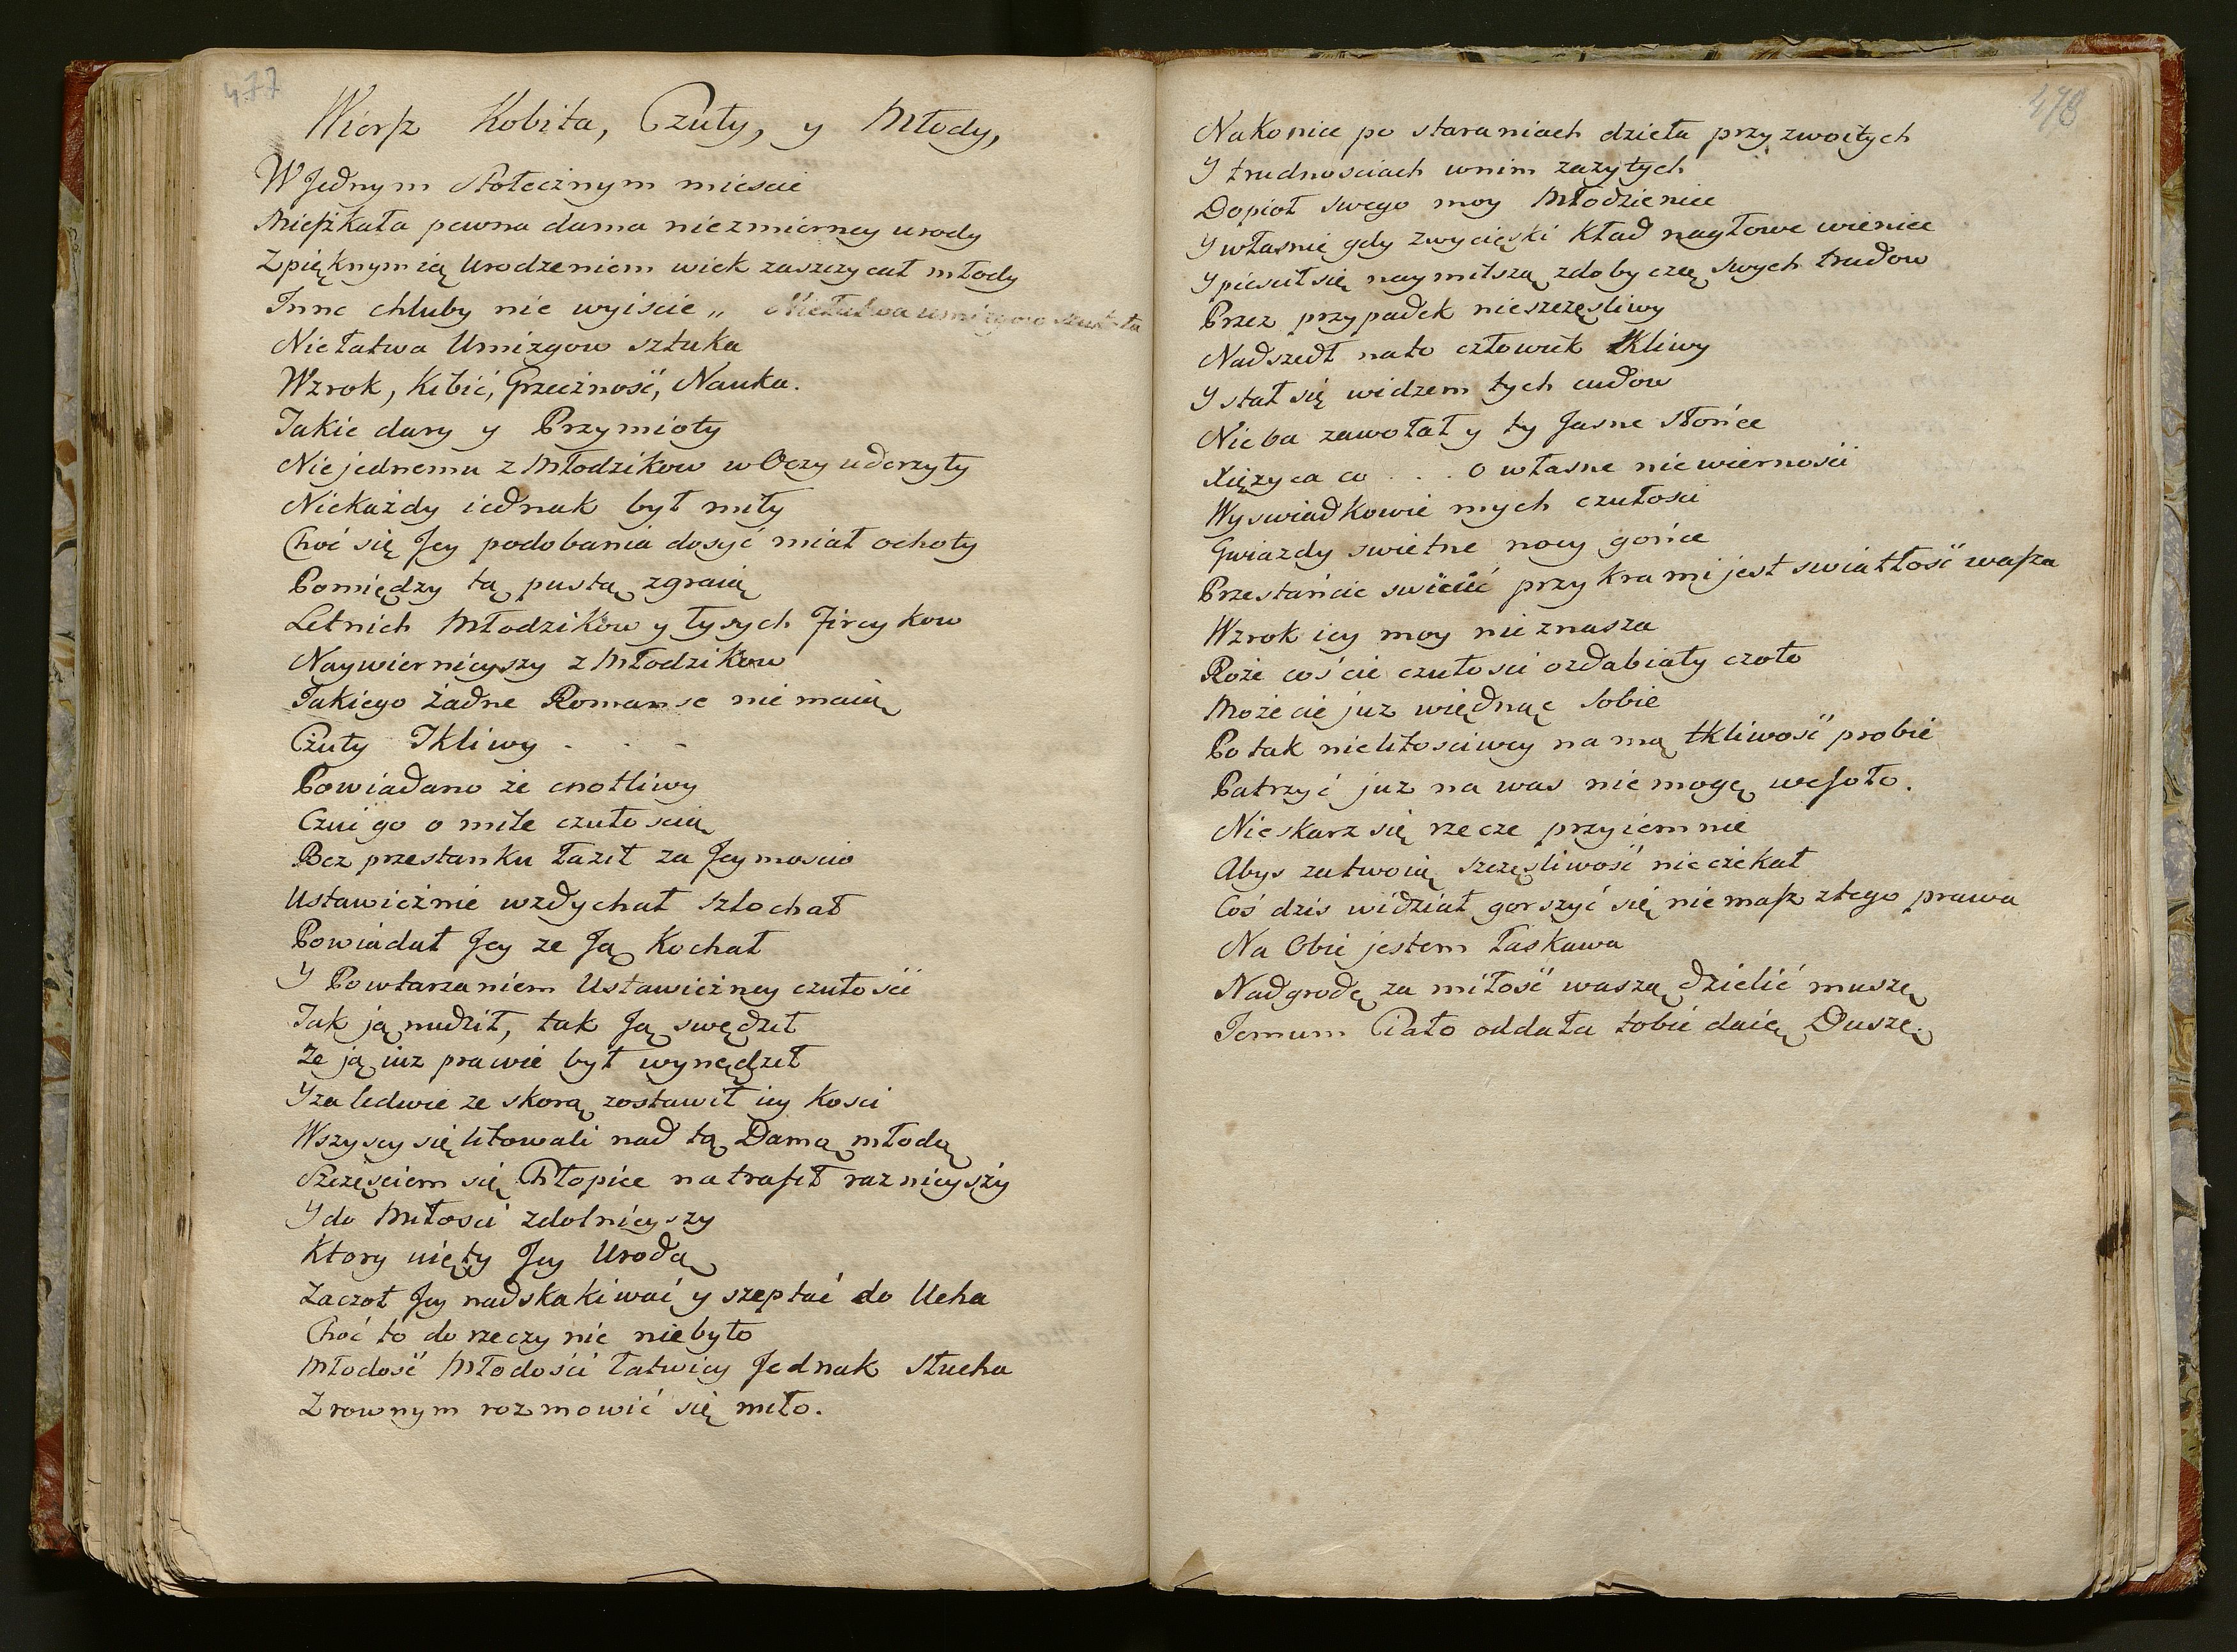 477
Wiersz Kobita, Czuły, y Młody,
W Jednym Stołecznym miescie
Mieszkała pewna dama niezmierney urody
Z pięknym ią Urodzeniem wiek zaszczycał młody
Inne chluby nie wyiscie „ Niełatwa umizgow sztuka
Niełatwa Umizgow sztuka
Wzrok, Kibić, Grzeczność, Nauka.
Takie dary y Przymioty
Niejednemu z Młodzikow w Oczy uderzyły
Niekażdy iednak był miły
Choć się Jey podobania dosyć miał ochoty
Pomiędzy tą pustą zgraią
Letnich Młodzikow y łysych Fircykow
Naywiernieyszy z Młodzikow
Takiego żadne Romanse nie maią
Czuły Tkliwy . . -
Powiadano że cnotliwy
Czui go o mile czułoscią
Bez przestanku łaził za Jeymoscio
Ustawicznie wzdychał szlochał
Powiadał Jey ze Ją Kochał
Y Powtarzaniem Ustawiczney czułości
Tak ją nudził, tak Ją swędził
Ze ją iuz prawie był wynędził
Y za ledwie ze skorą zostawił iey Kosci
Wszyscy się litowali nad tą Damą młodą
Szczęsciem się Chłopiec natrafił raznieyszy
Y do Miłosci zdolnieyszy
Ktory uięty Jey Urodą
Zaczoł Jey nadskakiwać y szeptać do Ucha
Choć to do rzeczy nic niebyło
Młodość Młodości łatwiey Jednak słucha
Z rownym rozmowić się miło.
478
Nakoniec po staraniach dzieła przyzwoitych
Y trudnosciach wnim zazytych
Dopioł swego moy Młodzieniec
Y własnie gdy zwycięski kład nagłowe wieniec
Y piescił się naymilszą zdobyczą swych trudow
Przez przypadek nieszczęsliwy
Nadszedł nato człowiek tkliwy
Y stał się widzem tych cudow
Nieba zawołał y ty Jasne słońce
Xiężyca co . . . o własne niewiernosci
Wy swiadkowie mych czułosci
Gwiazdy swietne nocy gońce
Przestańcie swiecić przykra mi jest swiatłość wasza
Wzrok iey moy nie znasza
Roże coście czułosci ozdabiały czoło
Możecie juz więdnąc sobie
Po tak nielitosciwey na mą tkliwość probie
Patrzyć juz na was nie mogę wesoło.
Nieskarz się rzecze przyiemnie
Abys zatwoią szczęsliwość nieczekał
Coś dzis widział gorszyć się nie masz ztego prawa
Na Obie jestem łaskawa
Nadgrodę za miłość waszą dzielić muszę
Jemum Ciało oddała tobie daię Duszę.